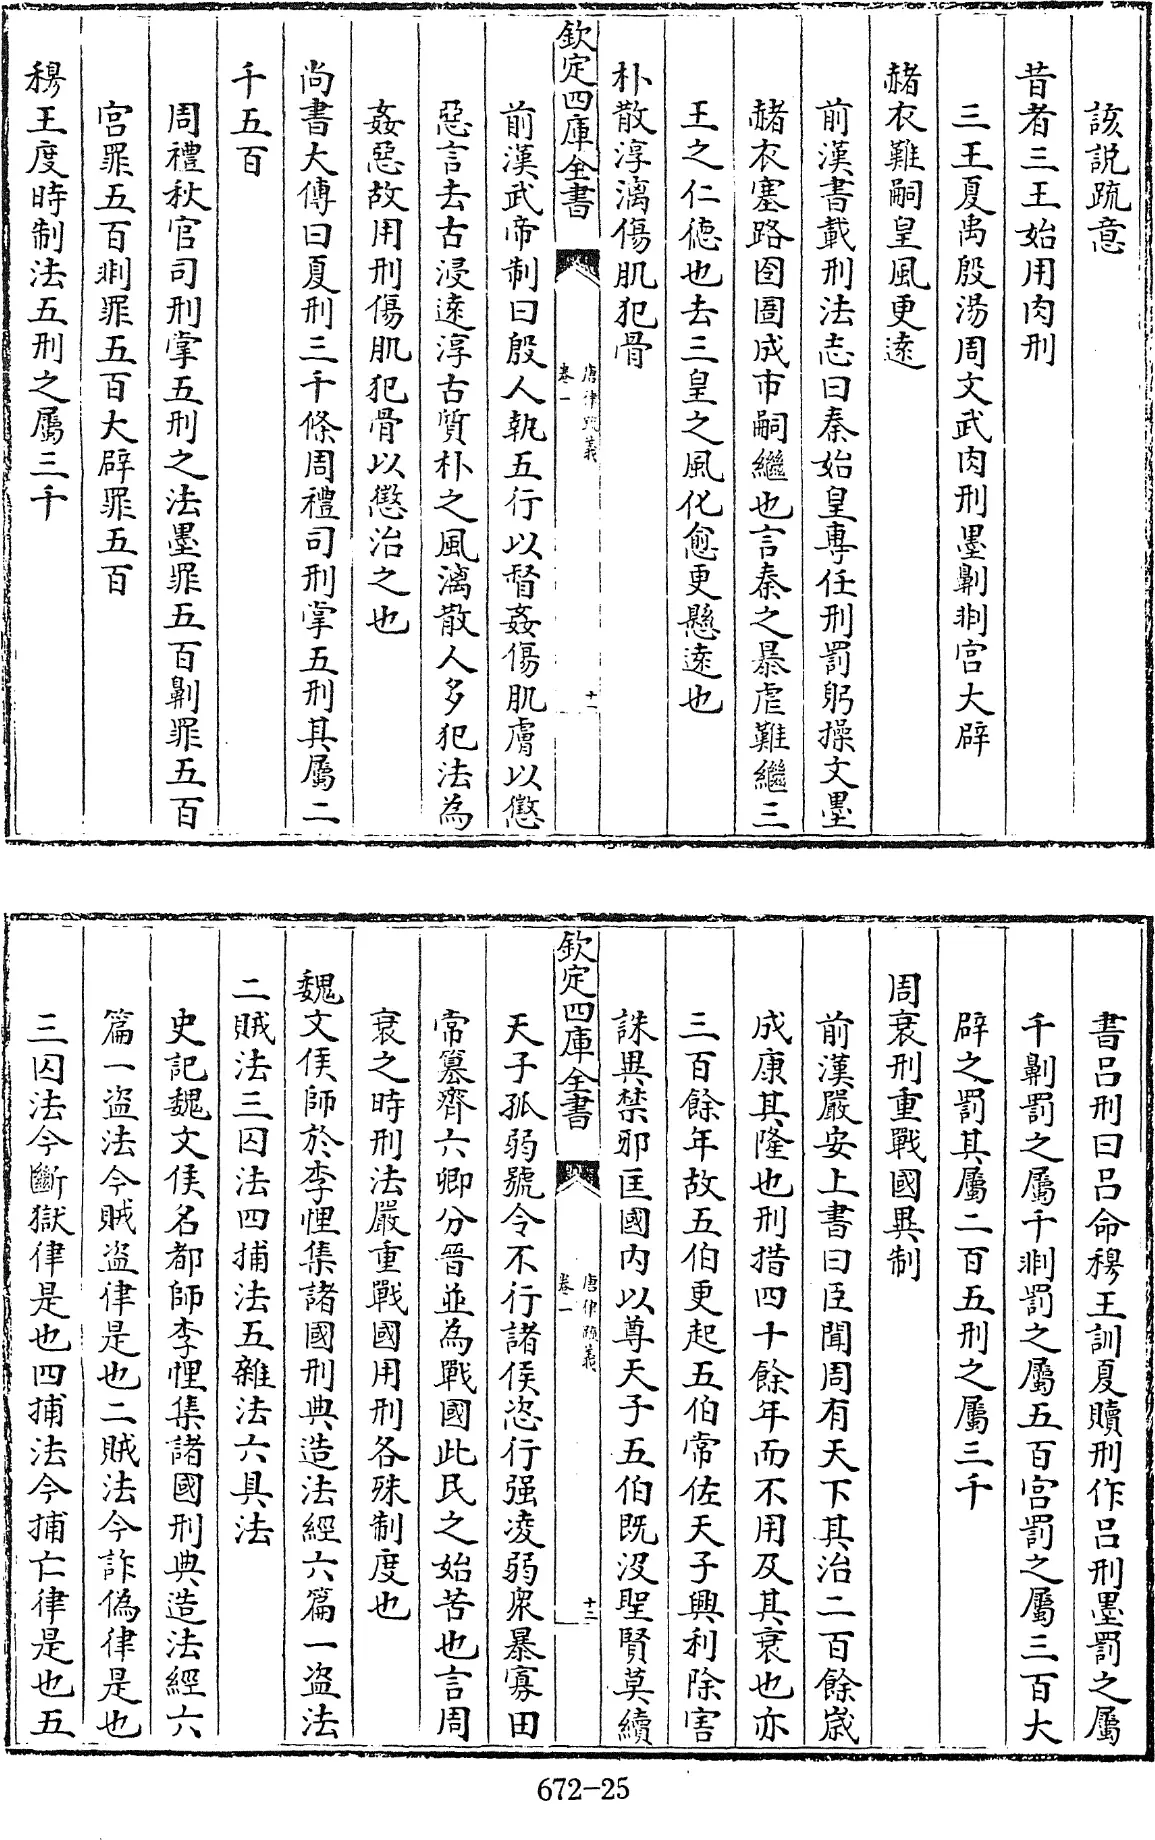 該説疏意
昔者三王始用肉刑
三王夏禹殷湯周文武肉刑墨劓剕宫大辟
赭衣難嗣皇風更逺
前漢書載刑法志曰秦始皇專任刑罰躬操文墨
赭衣塞路囹圄成市嗣繼也言秦之暴虐難繼三
王之仁徳也去三皇之風化愈更懸逺也
朴散淳漓傷肌犯骨
欽定四庫全書
唐律疏義
卷一
十一
前漢武帝制曰殷人執五行以督姦傷肌膚以懲
惡言去古浸逺淳古質朴之風漓散人多犯法為
姦惡故用刑傷肌犯骨以懲治之也
尚書大傳曰夏刑三千條周禮司刑掌五刑其屬二
千五百
周禮秋官司刑掌五刑之法墨罪五百劓罪五百
宫罪五百剕罪五百大辟罪五百
穆王度時制法五刑之屬三千
書吕刑曰吕命穆王訓夏贖刑作吕刑墨罰之屬
千劓罰之屬千剕罰之屬五百宫罰之屬三百大
辟之罰其屬二百五刑之屬三千
周衰刑重戰國異制
前漢嚴安上書曰臣聞周有天下其治二百餘嵗
成康其隆也刑措四十餘年而不用及其衰也亦
三百餘年故五伯更起五伯常佐天子興利除害
誅異禁邪匡國内以尊天子五伯既沒聖賢莫續
欽定四庫全書
唐律疏義
卷一
十二
天子孤弱號令不行諸侯恣行强凌弱衆暴寡田
常簒齊六卿分晉並為戰國此民之始苦也言周
衰之時刑法嚴重戰國用刑各殊制度也
魏文侯師於李悝集諸國刑典造法經六篇一盗法
二賊法三囚法四捕法五雜法六具法
史記魏文侯名都師李悝集諸國刑典造法經六
篇一盗法今賊盗律是也二賊法今詐偽律是也
三囚法今斷獄律是也四捕法今捕亡律是也五
672-25